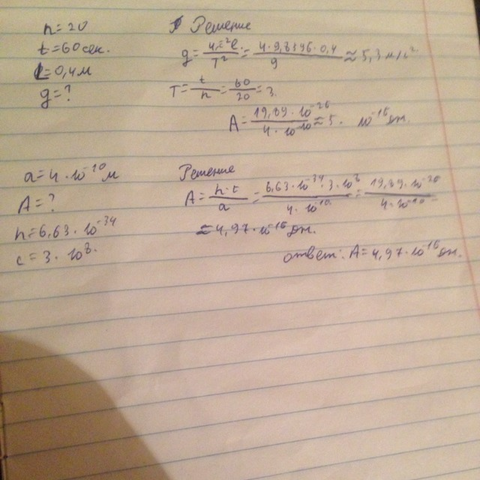 n=20
t=60сек.
l=0,4м
g=?
Решение
g = 4π²l / T² = 4·9,8596·0,4 / 9 ≈ 5,3 м/с²
T = t / n = 60 / 20 = 3.
A = 19,89·10⁻²⁶ / 4·10⁻¹⁰ ≈ 5· 10⁻¹⁶ дж.
a=4·10⁻¹⁰м
A=?
h=6,63·10⁻³⁴
c=3·10⁸.
Решение
A = h·c / a = 6,63·10⁻³⁴·3·10⁸ / 4·10⁻¹⁰ = 19,89·10⁻²⁶ / 4·10⁻¹⁰ =
≈4,97·10⁻¹⁶ дж.
ответ: A=4,97·10⁻¹⁶ дж.